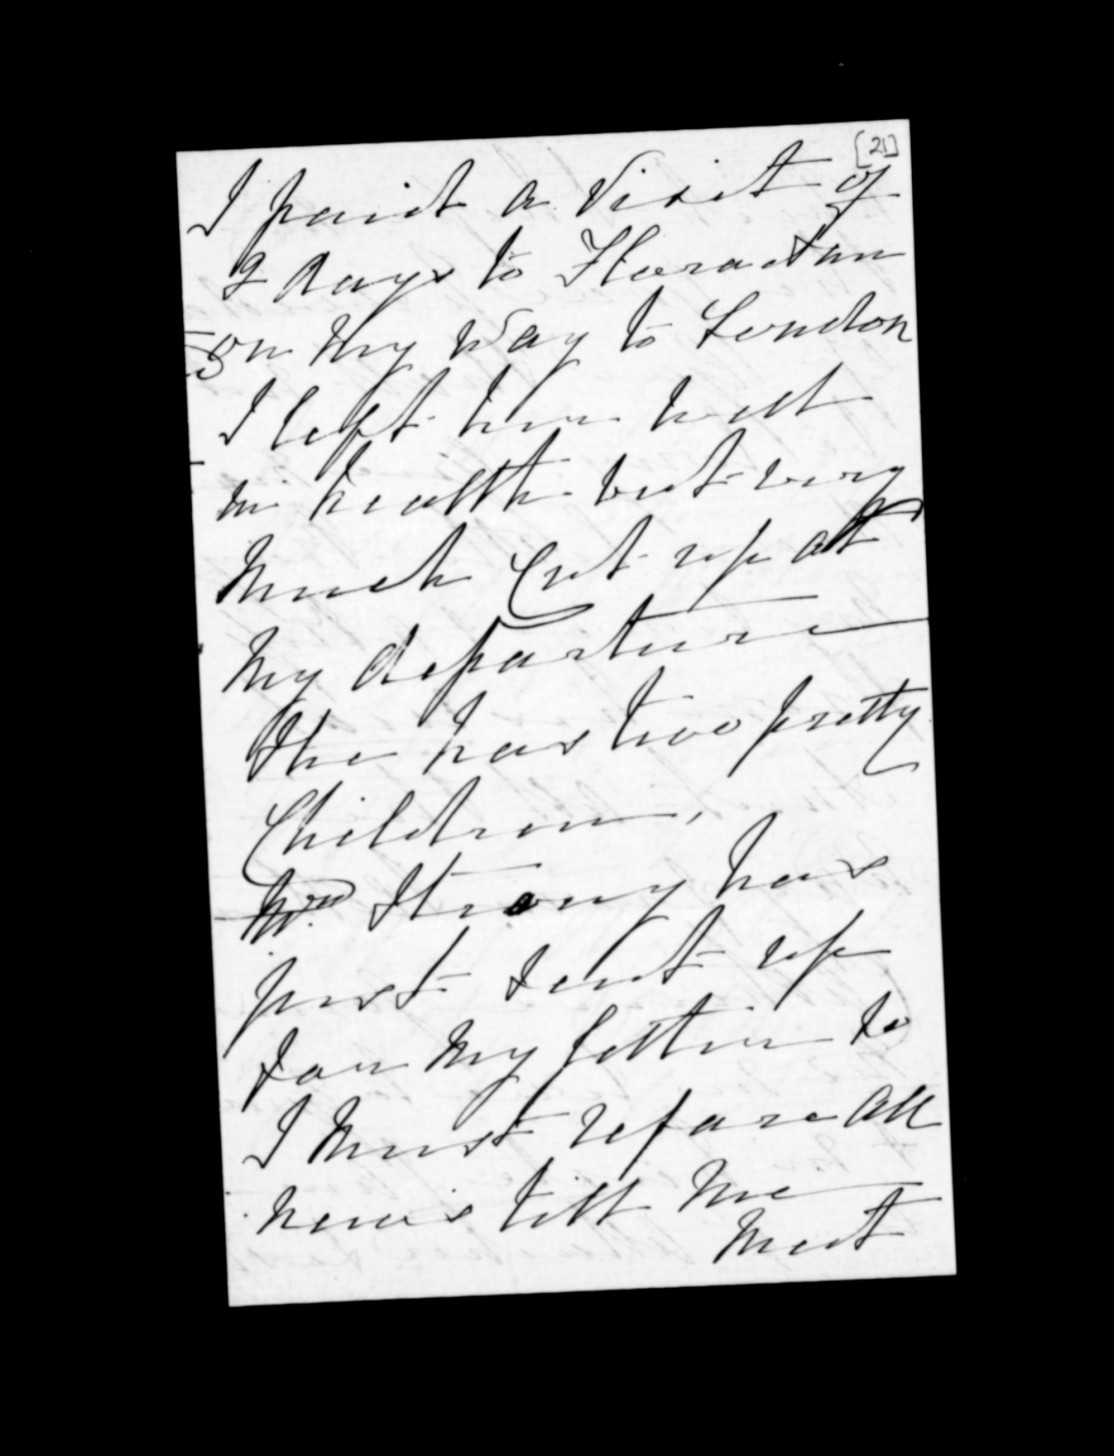 [21]
I paid a Visit of
2 days to
on my way to London
I left her well
in health but very
much Cut up at
my departure
She has two pretty
Children,
Mrs Strong has
just sent up
for my letter so
I must refer all
news till we
meet